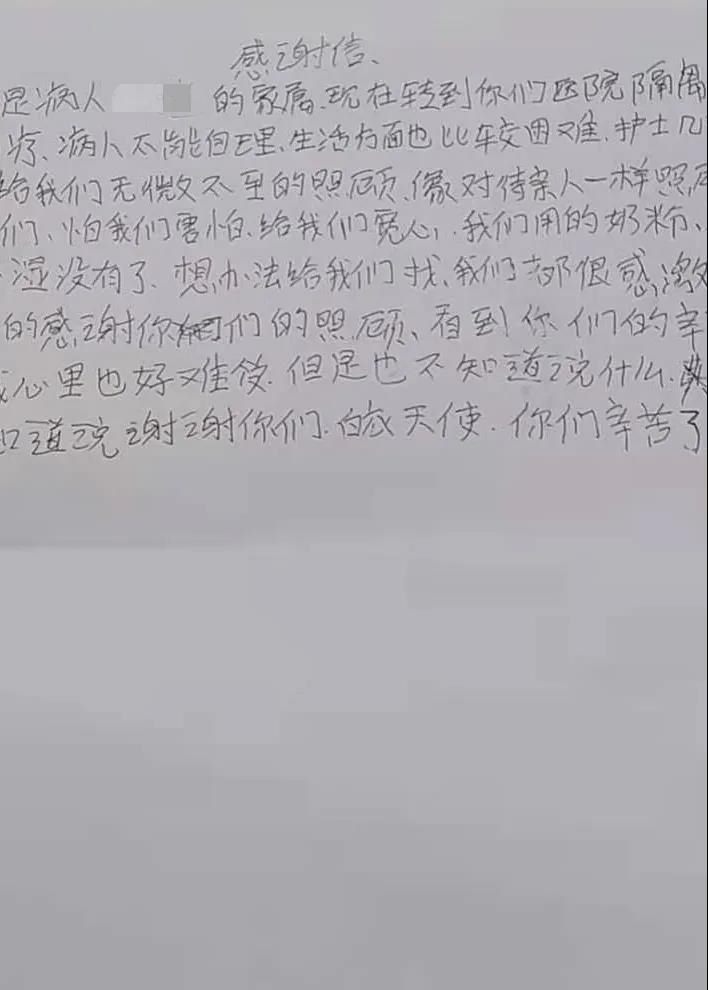 感谢信、
是病人 的家属.现在转到你们医院隔离
疗、病人不能自理、生活方面也比较困难.护士几
给我们无微不至的照顾、像对待亲人一样照顾
们、怕我们害怕.给我们宽心,.我们用的奶粉、
湿没有了、想办法给我们找、我们都很感激
的感谢你们的照顾、看到你们的辛
心里也好难受.但是也不知道说什么.
知道说谢谢你们.白衣天使.你们辛苦了